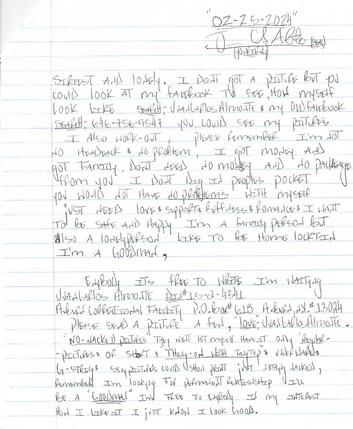 "02-25-2024"
STREET AND LONELY. I DON'T GOT A PICTURE BUT YOU
COULD LOOK AT MY FACEBOOK TO SEE HOW MYSELF
LOOK LIKE SEARCH: JUANCARLOS ALMONTE & MY OLD FACEBOOK
SEARCH: YOU COULD SEE MY PICTURES
I ALSO WORK-OUT, PLEASE REMEMBER I'M NOT
NO HEADACK & NO PROBLEM, I GOT MONEY AND
GOT FAMILY. DON'T NEED NO MONEY AND NO PACKAGE
FROM YOU I DON'T DIG IN PEOPLES POCKET
YOU WOULD NOT HAVE NO PROBLEMS WITH MYSELF
JUST NEED LOVE & SUPPORT & ROMANCE I WANT
TO BE SAFE AND HAPPY I'M A FAMILY PERSON BUT
ALSO A LONELYPERSON LIKE TO BE HOME LOCKED IN
I'M A GOODMAN,
ITS FREE TO WRITE I'M WAITING
JUANCARLOS ALMONTE
AUBURN CORRECTIONAL FACILITY P.O. BOX 618 AUBURN, N.Y. 13024
PLEASE SEND A PICTURE A FEW, LOVE: JUANCARLOS ALMONTE.
NO-NACKED PICTURES THEY NOT LET ME HAVE IT ONLY
PICTURES OF SHORT & THONG-ON WITH &
G-STRING PICTURES COULD JUST NACKED,
REMEMBER I'M LOOKING FOR PERMANENT RELATIONSHIP I'LL
BE A "GOODMAN" I'M TO IN MY
HOW I LIKE IT I JUST KNOW I LOOK GOOD.